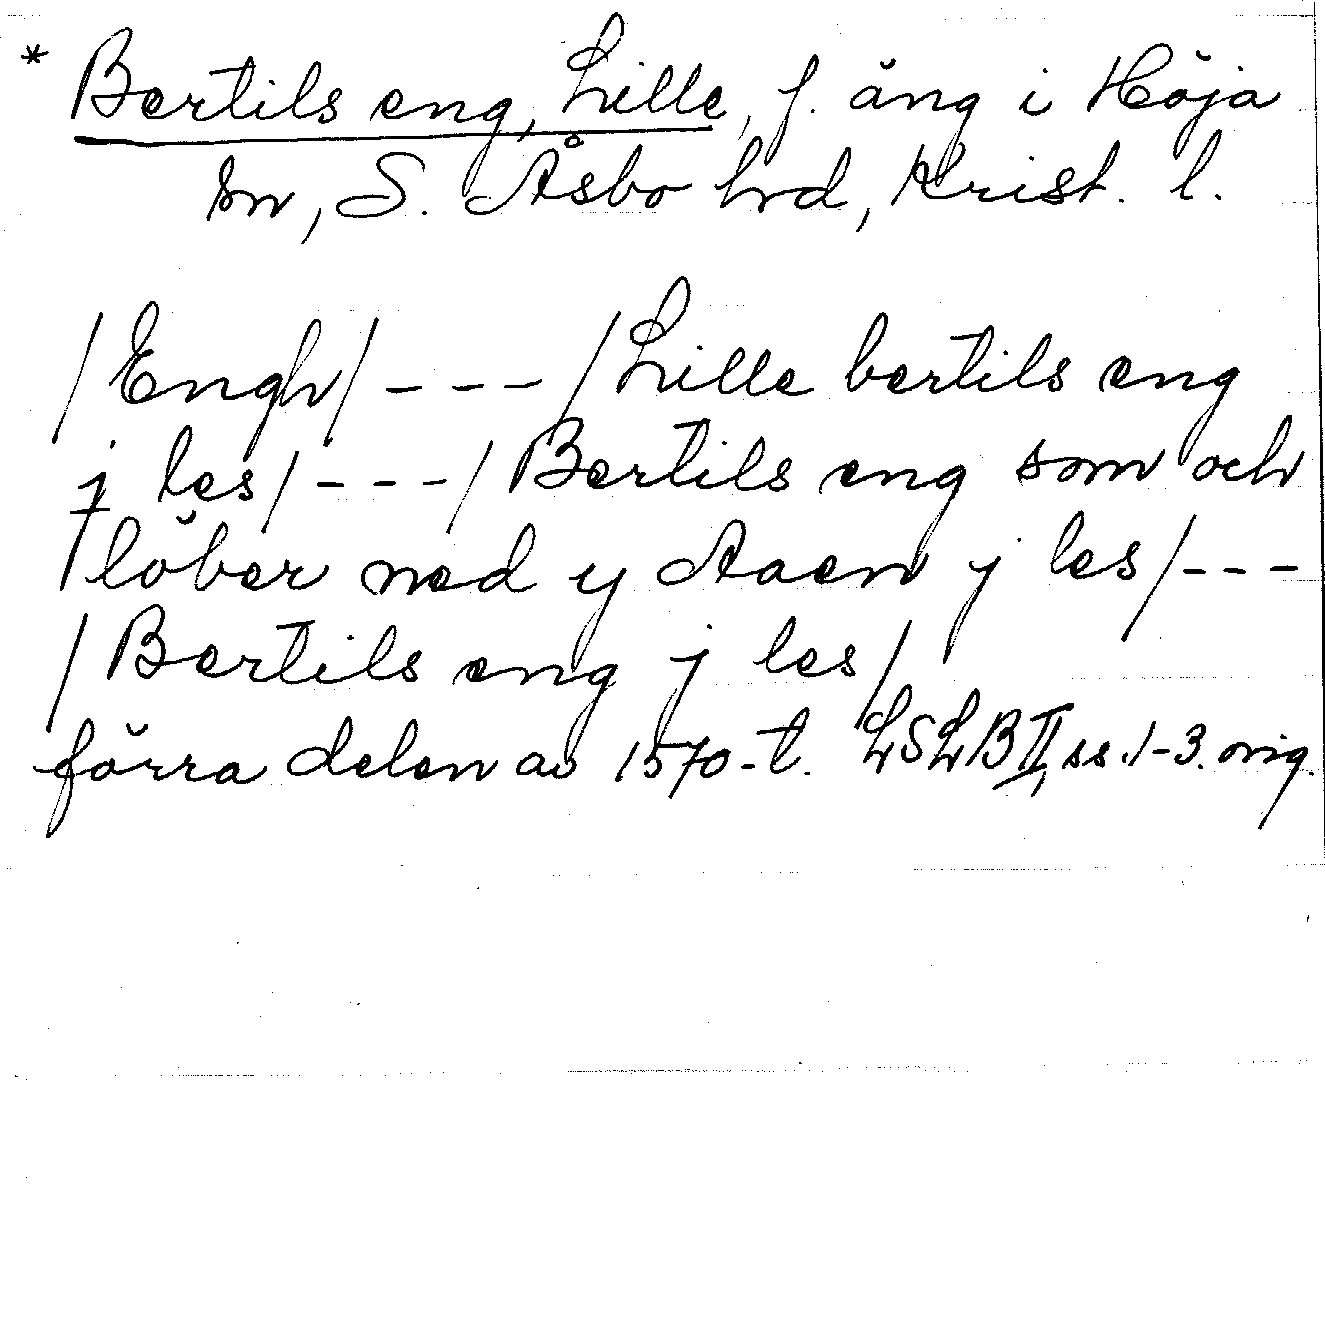 * Bertils eng, Lille, f. äng i Höja
sn, S. Åsbo hrd, Krist. l.
/Engh/ --- /Lille bertils eng
j les/ --- / Bertils eng som och
löber ned y Aaen j les/ ---
/Bertils eng j les/
förra delen av 1570-t. LSLB II, ss. 1-3. orig.